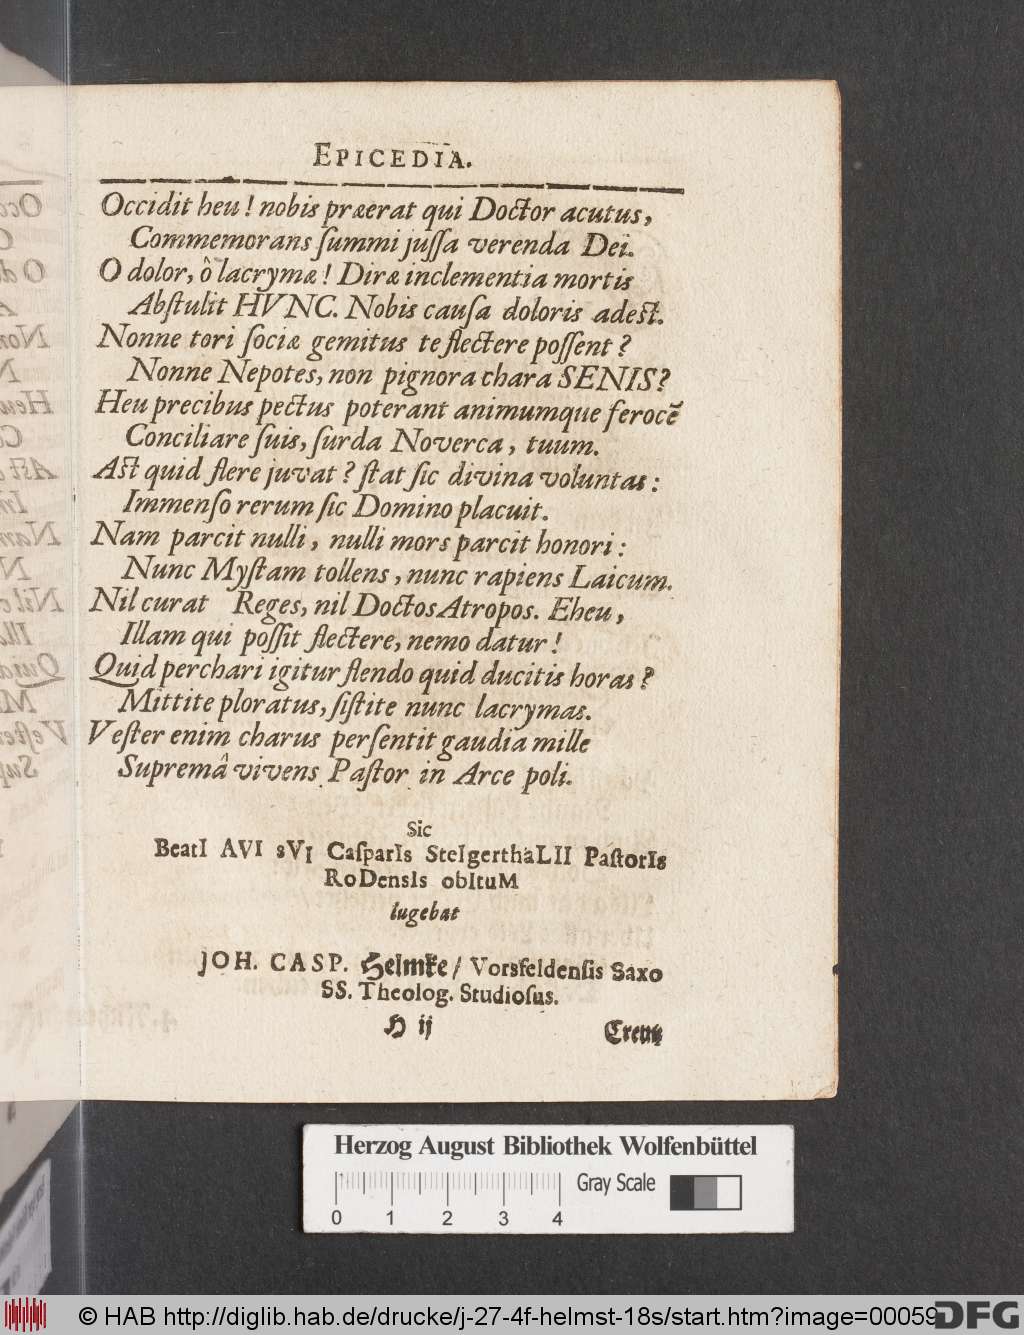 EPICEDIA.
Occidit heu! nobis præerat qui Doctor acutus,
Commemorans ſummi juſſa verenda Dei.
O dolor, ô lacrymæ! Diræ inclementia mortis
Abſtulit HVNC. Nobis cauſa doloris adest.
Nonne tori ſociæ gemitus te flectere poſſent?
Nonne Nepotes, non pignora chara SENIS?
Heu precibus pectus poterant animumque ferocẽ
Conciliare ſuis, ſurda Noverca, tuum.
Ast quid flere juvat? ſtat ſic divina voluntas:
Immenſo rerum ſic Domino placuit.
Nam parcit nulli, nulli mors parcit honori:
Nunc Myſtam tollens, nunc rapiens Laicum.
Nil curat Reges, nil Doctos Atropos. Eheu,
Illam qui poſſit flectere, nemo datur!
Quid perchari igitur flendo quid ducitis horas?
Mittite ploratus, ſiſtite nunc lacrymas.
Veſter enim charus perſentit gaudia mille
Supremâ vivens Paſtor in Arce poli.
Sic
BeatI AVI sVI CaſparIs SteIgerthaLII PaſtorIs
RoDensIs obItuM
lugebat
JOH. CASP. Helmke/ Vorsfeldenſis Saxo
SS. Theolog. Studioſus.
H ij
Herzog August Bibliothek Wolfenbüttel
Gray Scale
0 1 2 3 4
© HAB http://diglib.hab.de/drucke/j-27-4f-helmst-18s/start.htm?image=00059
DFG